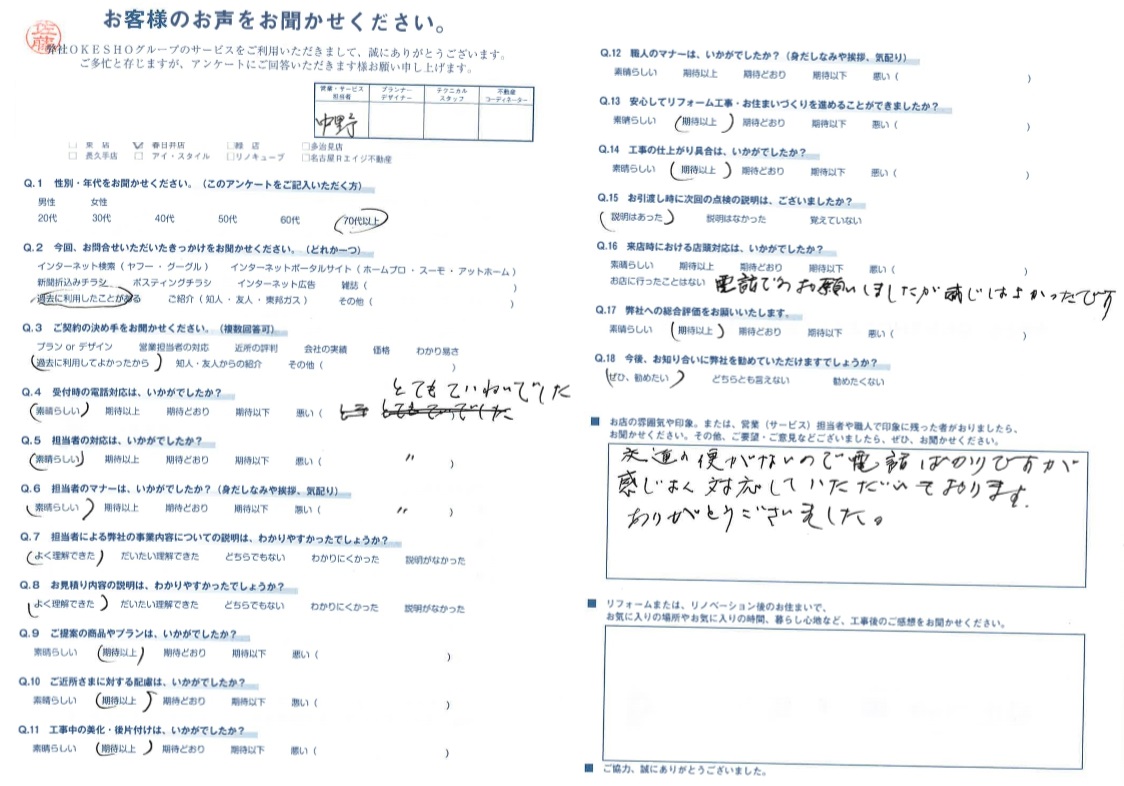 お客様のお声をお聞かせください。
佐藤
弊社OKESHOグループのサービスをご利用いただきまして、誠にありがとうございます。
ご多忙と存じますが、アンケートにご回答いただきます様お願い申し上げます。
営業・サービス担当者 プランナーデザイナー テクニカルスタッフ 不動産コーディネーター
中野
□本店 ☑春日井店 □緑店 □多治見店
□長久手店 □アイ・スタイル □リノキューブ □名古屋Rエイジ不動産
Q.1 性別・年代をお聞かせください。(このアンケートをご記入いただく方)
男性 女性
20代 30代 40代 50代 60代 70代以上
Q.2 今回、お問合せいただいたきっかけをお聞かせください。(どれか一つ)
インターネット検索(ヤフー・グーグル) インターネットポータルサイト(ホームプロ・スーモ・アットホーム)
新聞折込みチラシ ポスティングチラシ インターネット広告 雑誌( )
過去に利用したことがある ご紹介(知人・友人・東邦ガス) その他( )
Q.3 ご契約の決め手をお聞かせください。(複数回答可)
プラン or デザイン 営業担当者の対応 近所の評判 会社の実績 価格 わかり易さ
過去に利用してよかったから 知人・友人からの紹介 その他(
Q.4 受付時の電話対応は、いかがでしたか?
とてもていねいでした
素晴らしい 期待以上 期待どおり 期待以下 悪い(
Q.5 担当者の対応は、いかがでしたか?
素晴らしい 期待以上 期待どおり 期待以下 悪い( 〃 )
Q.6 担当者のマナーは、いかがでしたか?(身だしなみや挨拶、気配り)
素晴らしい 期待以上 期待どおり 期待以下 悪い( 〃 )
Q.7 担当者による弊社の事業内容についての説明は、わかりやすかったでしょうか?
よく理解できた だいたい理解できた どちらでもない わかりにくかった 説明がなかった
Q.8 お見積り内容の説明は、わかりやすかったでしょうか?
よく理解できた だいたい理解できた どちらでもない わかりにくかった 説明がなかった
Q.9 ご提案の商品やプランは、いかがでしたか?
素晴らしい 期待以上 期待どおり 期待以下 悪い( )
Q.10 ご近所さまに対する配慮は、いかがでしたか?
素晴らしい 期待以上 期待どおり 期待以下 悪い( )
Q.11 工事中の美化・後片付けは、いかがでしたか?
素晴らしい 期待以上 期待どおり 期待以下 悪い( )
Q.12 職人のマナーは、いかがでしたか?(身だしなみや挨拶、気配り)
素晴らしい 期待以上 期待どおり 期待以下 悪い( )
Q.13 安心してリフォーム工事・お住まいづくりを進めることができましたか?
素晴らしい 期待以上 期待どおり 期待以下 悪い( )
Q.14 工事の仕上がり具合は、いかがでしたか?
素晴らしい 期待以上 期待どおり 期待以下 悪い( )
Q.15 お引渡し時に次回の点検の説明は、ございましたか?
説明はあった 説明はなかった 覚えていない
Q.16 来店時における店頭対応は、いかがでしたか?
素晴らしい 期待以上 期待どおり 期待以下 悪い( )
お店に行ったことはない 電話でのお願いしましたが感じはよかったです
Q.17 弊社への総合評価をお願いいたします。
素晴らしい 期待以上 期待どおり 期待以下 悪い( )
Q.18 今後、お知り合いに弊社を勧めていただけますでしょうか?
ぜひ、勧めたい どちらとも言えない 勧めたくない
■ お店の雰囲気や印象。または、営業(サービス)担当者や職人で印象に残った者がおりましたら、
お聞かせください。その他、ご要望・ご意見などございましたら、ぜひ、お聞かせください。
交通の便がないので電話ばかりですが
感じよく対応していただいております.
ありがとうございました。
■ リフォームまたは、リノベーション後のお住まいで、
お気に入りの場所やお気に入りの時間、暮らし心地など、工事後のご感想をお聞かせください。
■ ご協力、誠にありがとうございました。